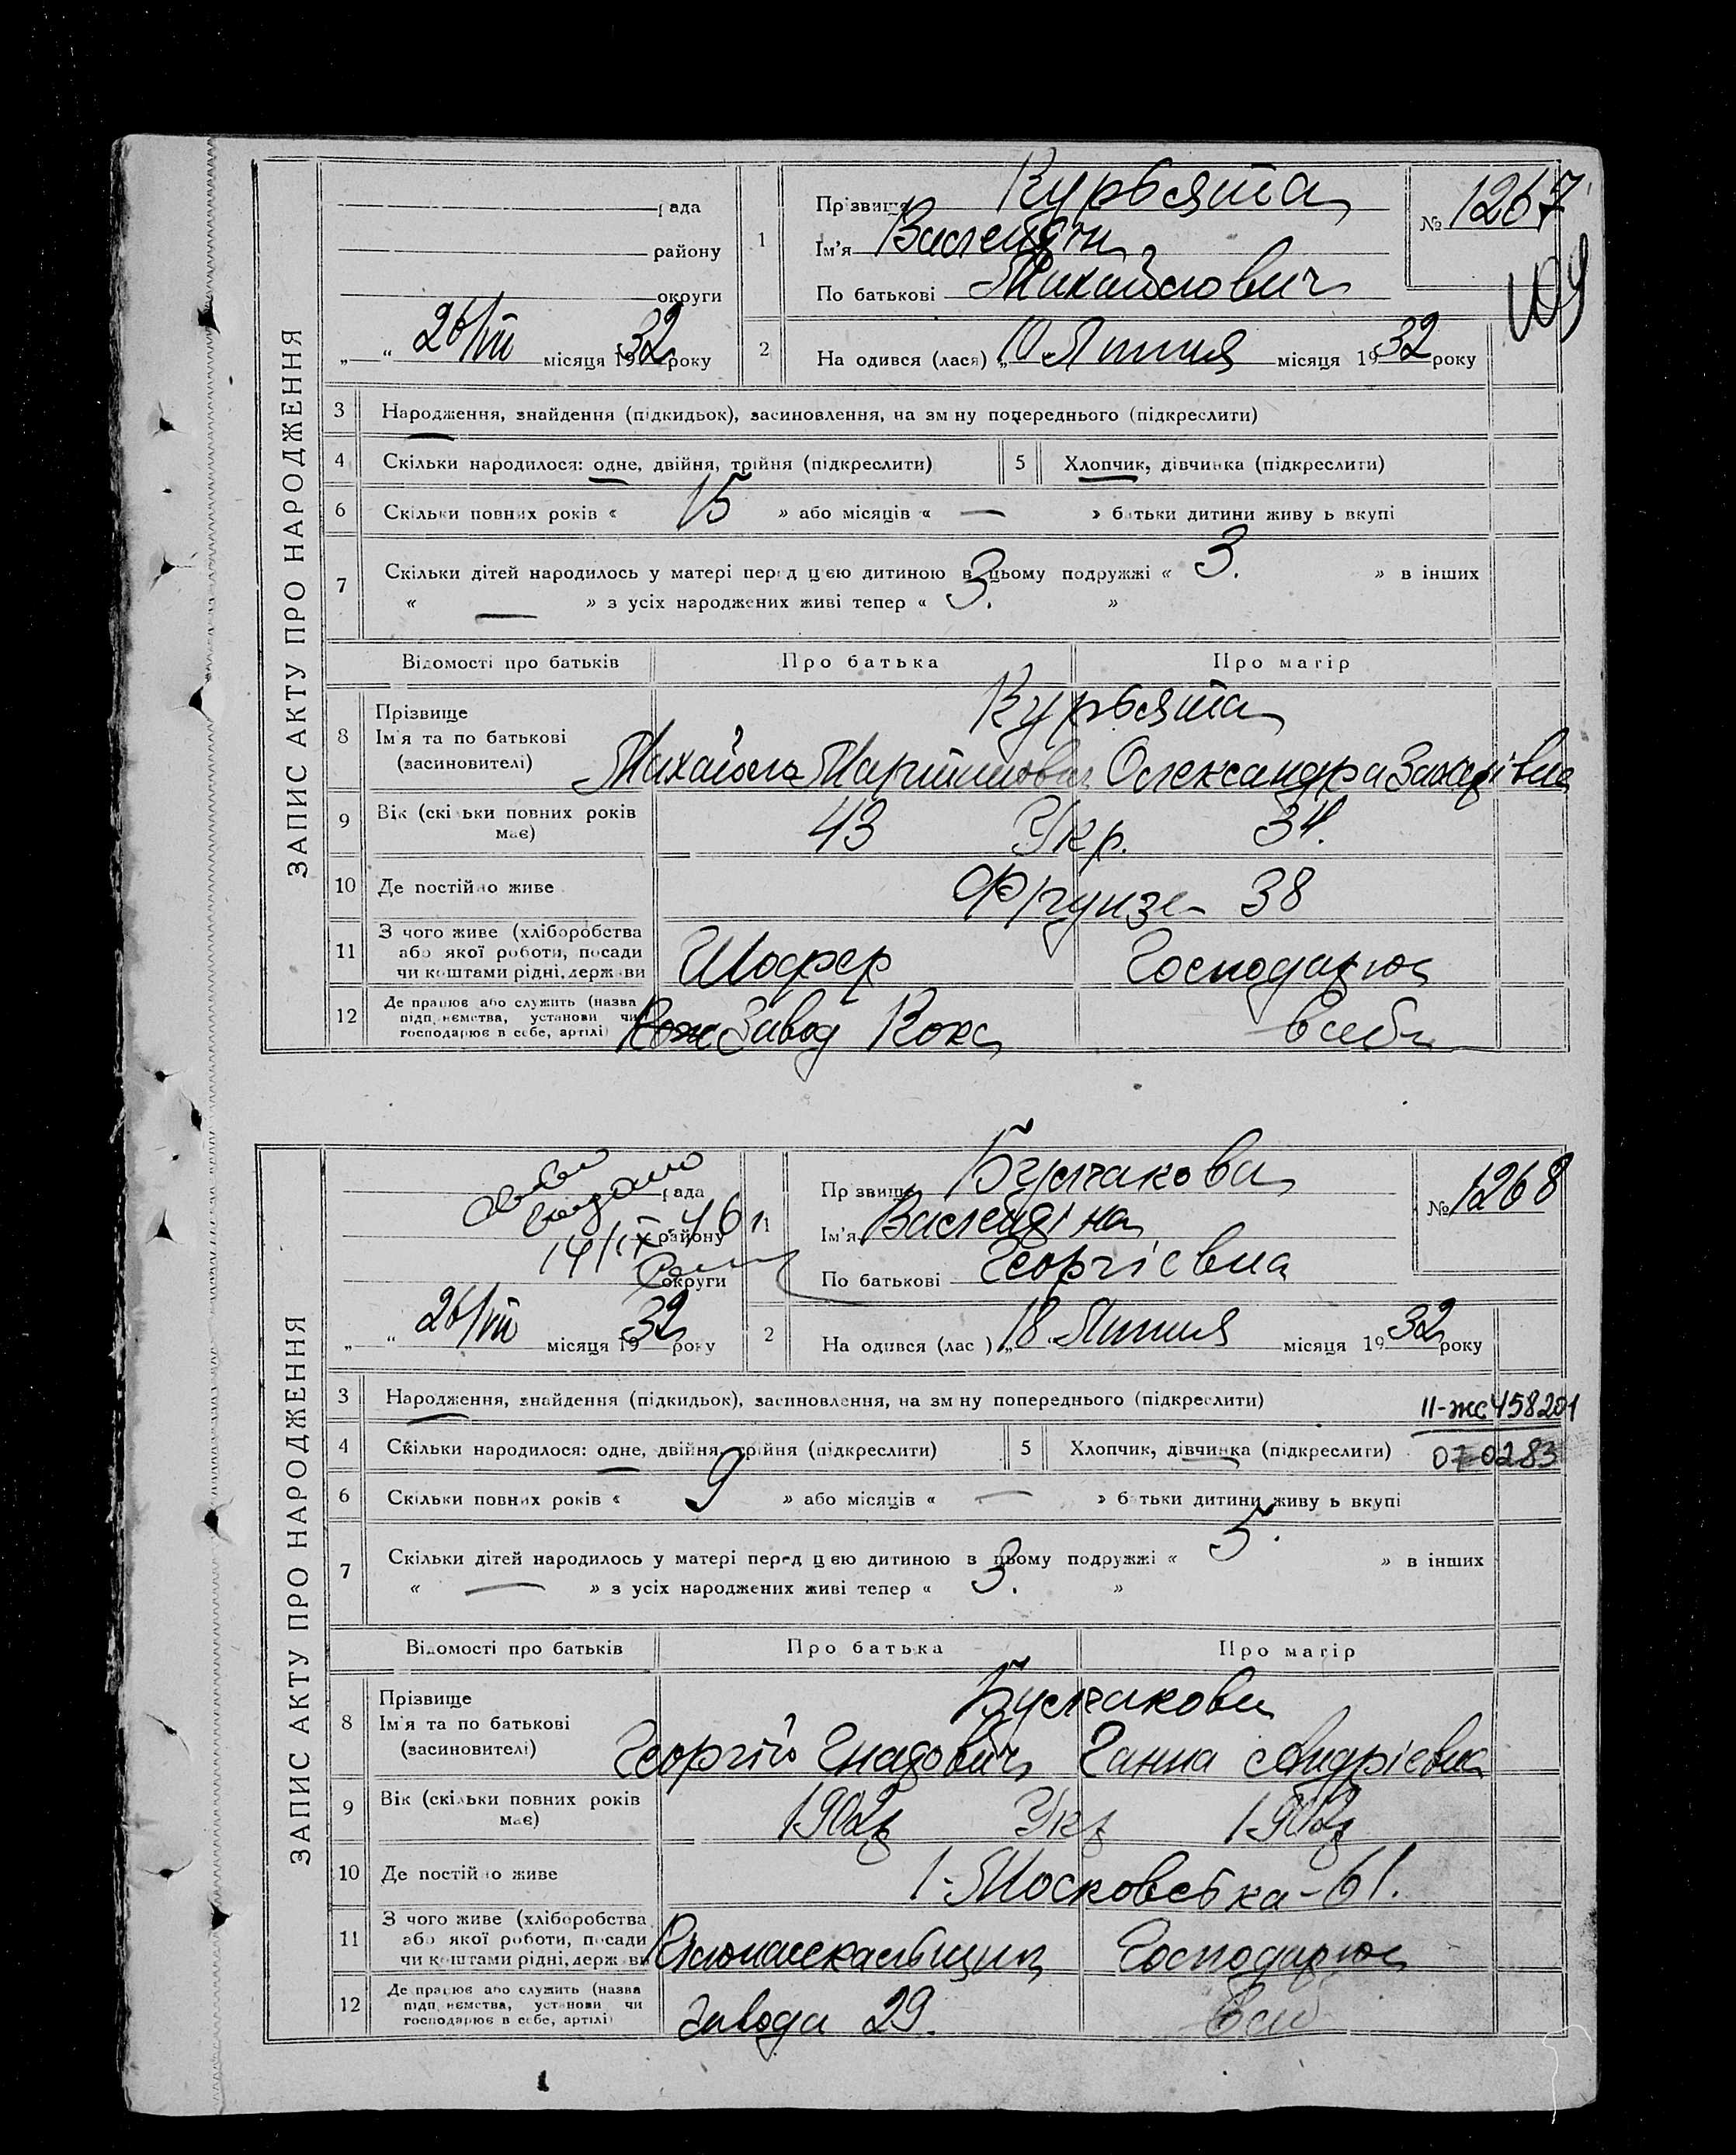 ЗАПИС АКТУ ПРО НАРОДЖЕННЯ
рада
району
округи
„ “ 26/VII місяця 1932 року
1
Прізвище Курьята
Ім'я Валентин
По батькові Михайлович
№ 1267
109
2 На одився (лася) „ 10 Липня місяця 1932 року
3 Народження, знайдення (підкидьок), засиновлення, на зм ну попереднього (підкреслити)
4 Скільки народилося: одне, двійня, трійня (підкреслити) 5 Хлопчик, дівчинка (підкреслити)
6 Скільки повних років « 15 » або місяців « — » батьки дитини живу ь вкупі
7 Скільки дітей народилось у матері перед цією дитиною в цьому подружжі « 3. » в інших
« — » з усіх народжених живі тепер « 3. »
Відомості про батьків Про батька Про матір
8 Прізвище
Ім'я та по батькові
(засиновителі)
Курьята
Михайло Мартинович Олександра Захарівна
9 Вік (скільки повних років має) 43 Укр. 34.
10 Де постійно живе Фрунзе 38
11 З чого живе (хліборобства
або якої роботи, посади
чи коштами рідні, держави
Шофер Господарює
12 Де працює або служить (назва
підприємства, установи чи
господарює в себе, артілі)
Завод Кокс в себе
ЗАПИС АКТУ ПРО НАРОДЖЕННЯ
рада
району
округи
14/IX-46
„ “ 26/VII місяця 1932 року
1
Прізвище Булгакова
Ім'я Валентіна
По батькові Георгієвна
№ 1268
2 На одився (лас ) „ 18 Липня місяця 1932 року
3 Народження, знайдення (підкидьок), засиновлення, на зм ну попереднього (підкреслити)
II-жс 458201
4 Скільки народилося: одне, двійня, трійня (підкреслити) 5 Хлопчик, дівчинка (підкреслити)
070283
6 Скільки повних років « 9 » або місяців « — » батьки дитини живу ь вкупі
7 Скільки дітей народилось у матері перед цією дитиною в цьому подружжі « 5. » в інших
« — » з усіх народжених живі тепер « 3. »
Відомості про батьків Про батька Про матір
8 Прізвище
Ім'я та по батькові
(засиновителі)
Булгакови
Георгій Ганна Андрієвна
9 Вік (скільки повних років має) 1902р Укр 1902р
10 Де постійно живе 1-Московська-61.
11 З чого живе (хліборобства
або якої роботи, посади
чи коштами рідні, держави
Господарює
12 Де працює або служить (назва
підприємства, установи чи
господарює в себе, артілі)
завода 29. в себ